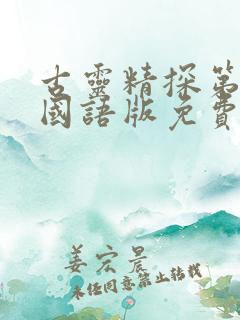 古靈精探第
國語版免費
姜宏晨
未经同意禁止转载